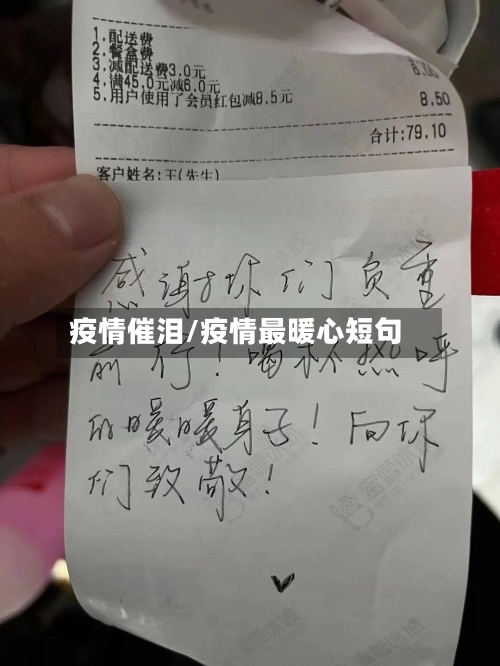 1.配送费
2.餐盒费
3.减配送费3.0元
4.满45.0元减6.0元
5.用户使用了会员红包减8.5元
8.50
合计:79.10
客户姓名:王(先生)
感谢你们负重
疫情催泪/疫情最暖心短句
前行!喝杯热呼
的暖暖身子!向你
们致敬!